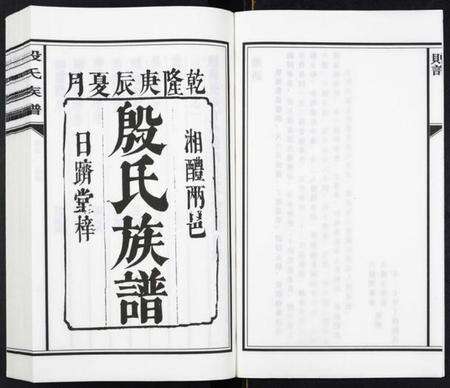 乾隆庚辰夏月
湘醴兩邑
殷氏族譜
日躋堂梓
殷氏族譜